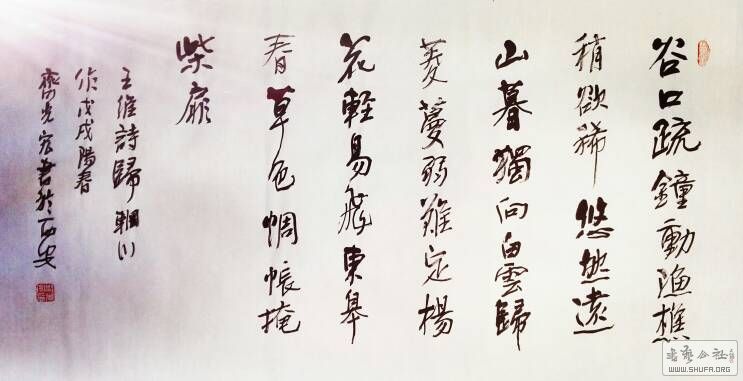 谷口疏鐘動漁樵
稍欲稀悠然遠
山暮獨向白雲歸
菱蔓弱難定楊
花輕易飛東皋
春草色惆悵掩
柴扉
王維詩歸輞川
作戊戌陽春
光宏書於西安
書藝公社
WWW.SHUFA.ORG